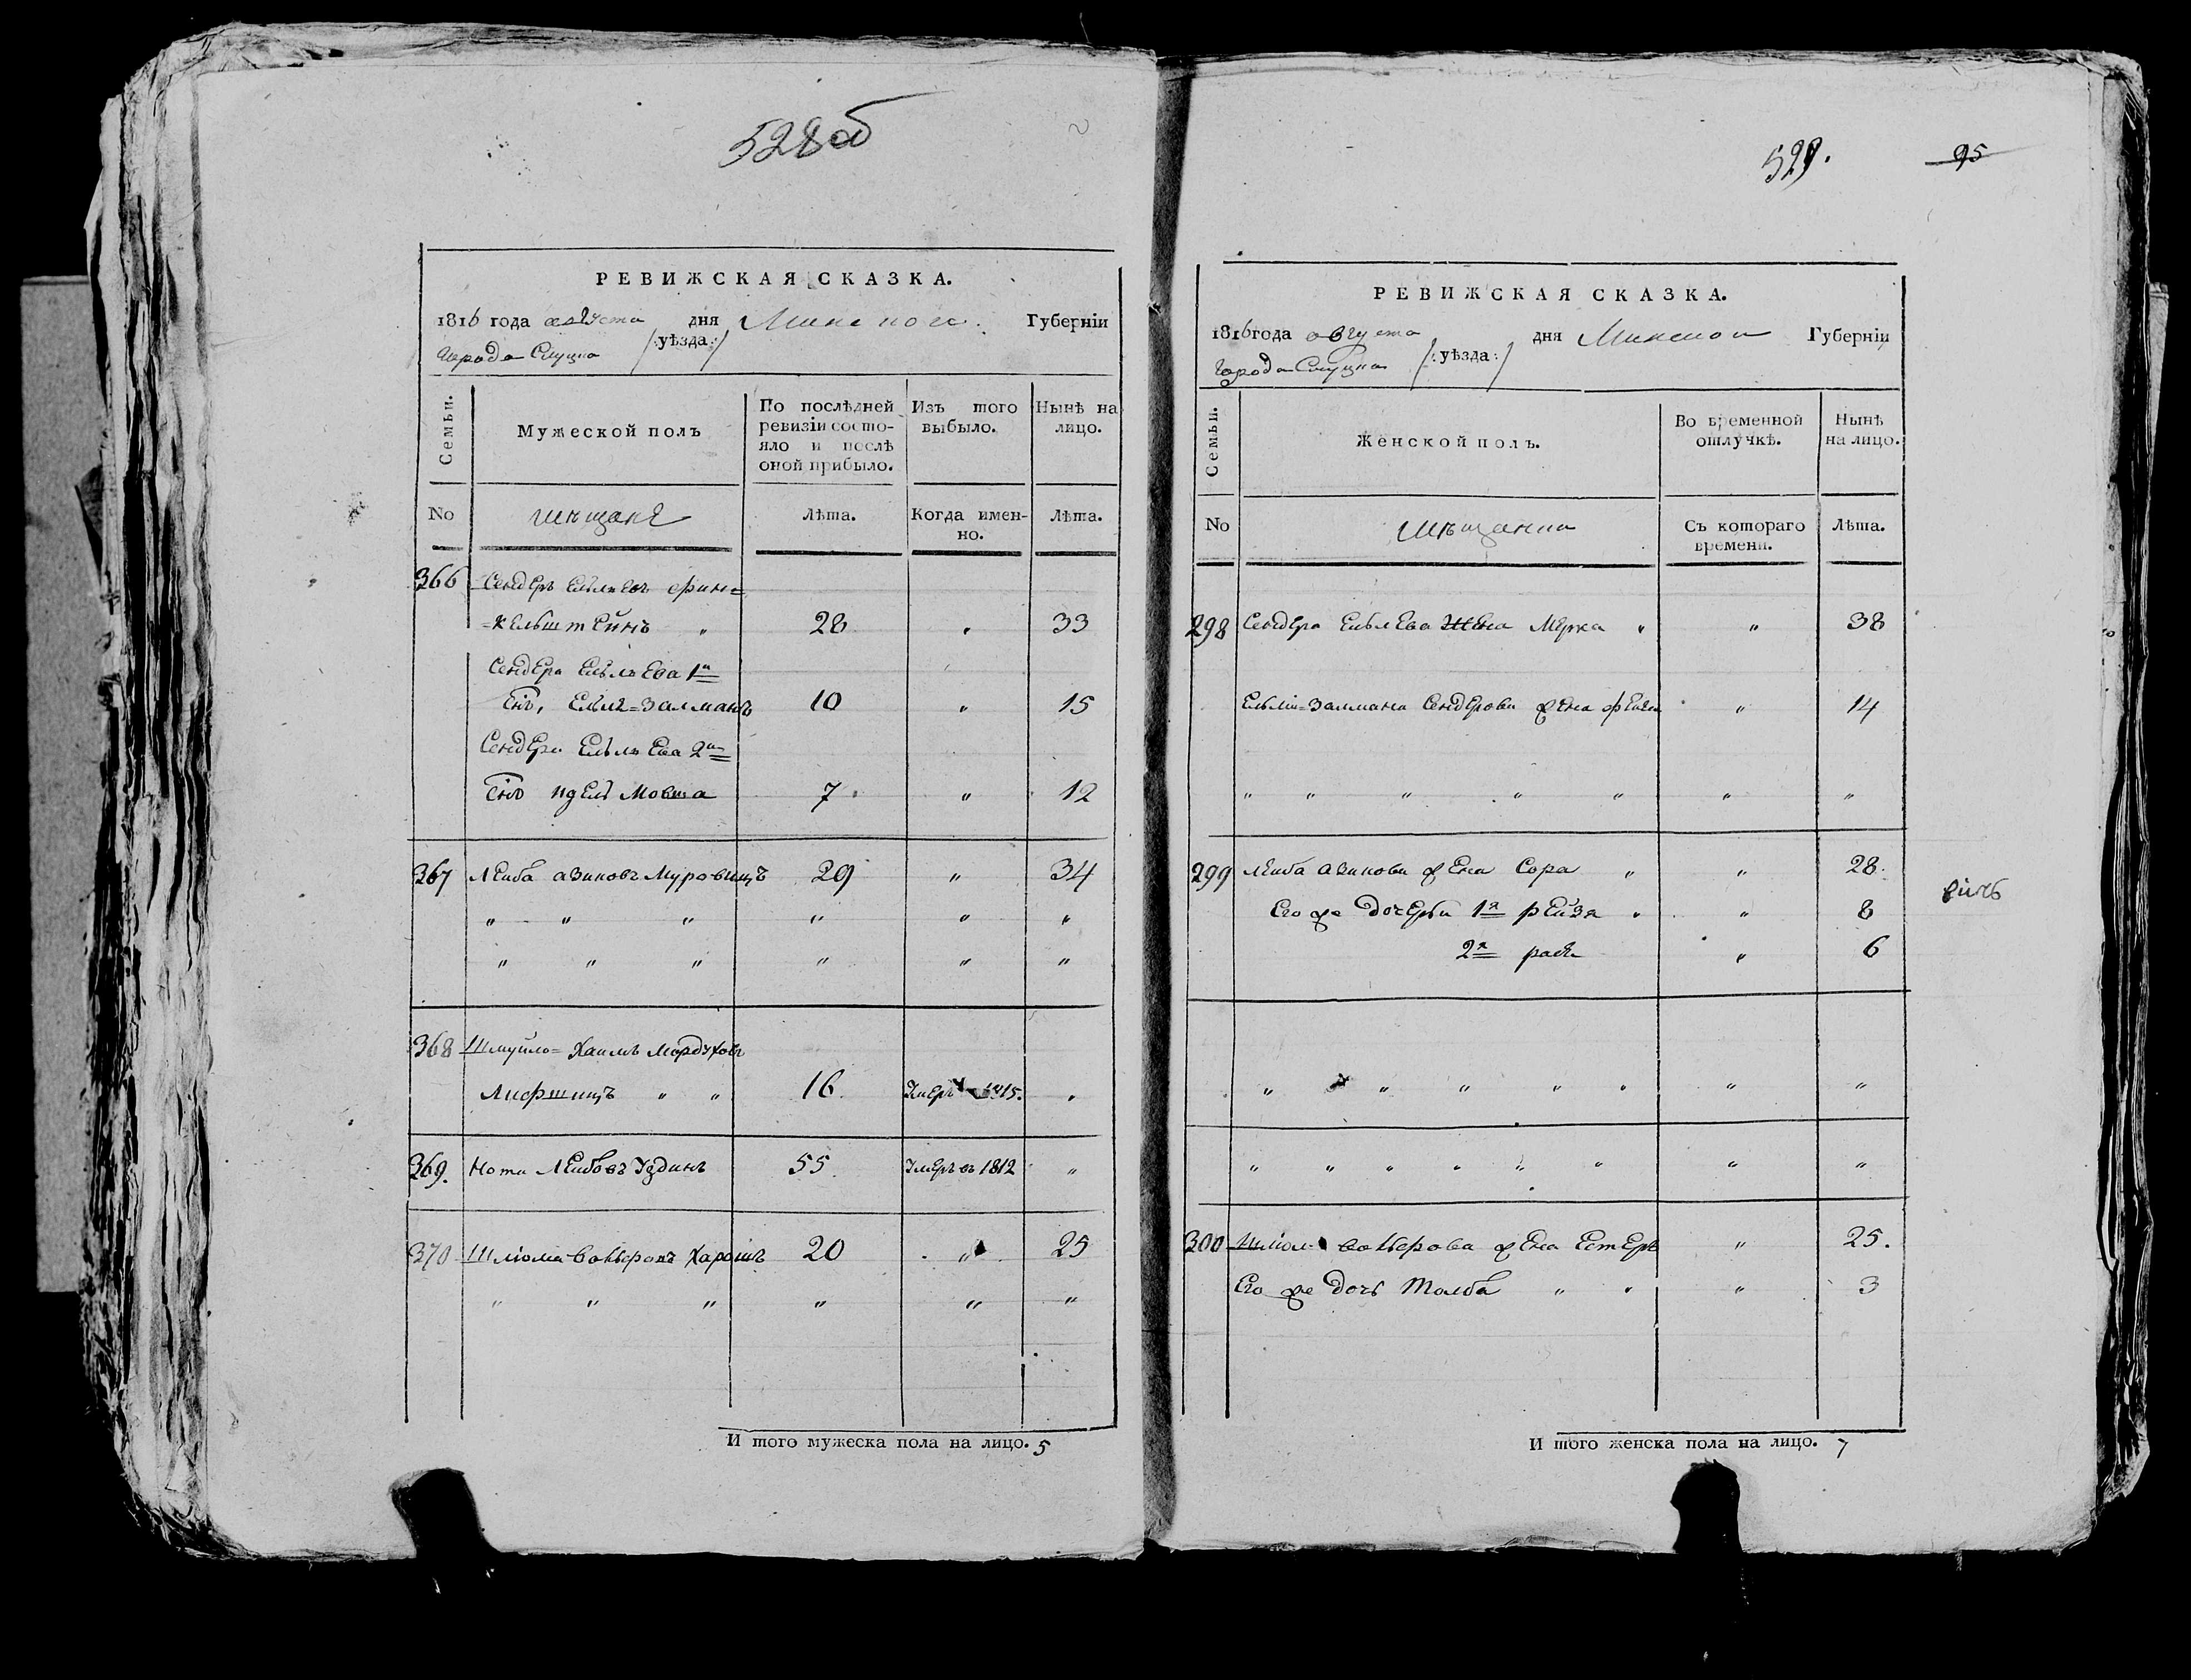 528об
РЕВИЖСКАЯ СКАЗКА.
1816 года августа дня Минской Губерніи
города Слуцка /:уѣзда:/
Семьи.
Мужеской полъ
По послѣдней ревизіи состо-
яло и послѣ оной прибыло.
Изъ того выбыло.
Нынѣ на лицо.
No
мѣщане
Лѣта.
Когда имен-
но.
Лѣта.
366 Сендеръ Ельевъ Фин=
=кельштейнъ " 28 " 33
Сендера Ельева 1й
Снъ, Залманъ 10 " 15
Сендера Ельева 2й
Снъ Мовша 7 " 12
367 Лейба 29 " 34
" " " " " "
" " " " " "
368 Шмуйло=Хаимъ Мордуховъ
Лифшицъ " " 16. Умеръ 1815. "
369. Нота Лейбовъ Уздинъ 55. Умеръ въ 1812 "
370 Шліома 20 " 25
" " " " " "
И того мужеска пола на лицо. 5
529.
95
РЕВИЖСКАЯ СКАЗКА.
1816 года августа дня Минской Губерніи
города Слуцка /:уѣзда:/
Семьи.
Женской полъ.
Во временной отлучкѣ.
Нынѣ на лицо.
No
Съ котораго времени.
Лѣта.
298 Сендера Ельева жена Мерка " " 38
Залмана Сендерова жена " 14
" " " " " " "
299 Лейба жена Сора " " 28.
Его же дочери 1я Рейза " " 8
2я " 6
" " " " " " "
" " " " " " " "
300 жена Естеръ " 25.
Его же дочь " " " 3
И того женска пола на лицо. 7